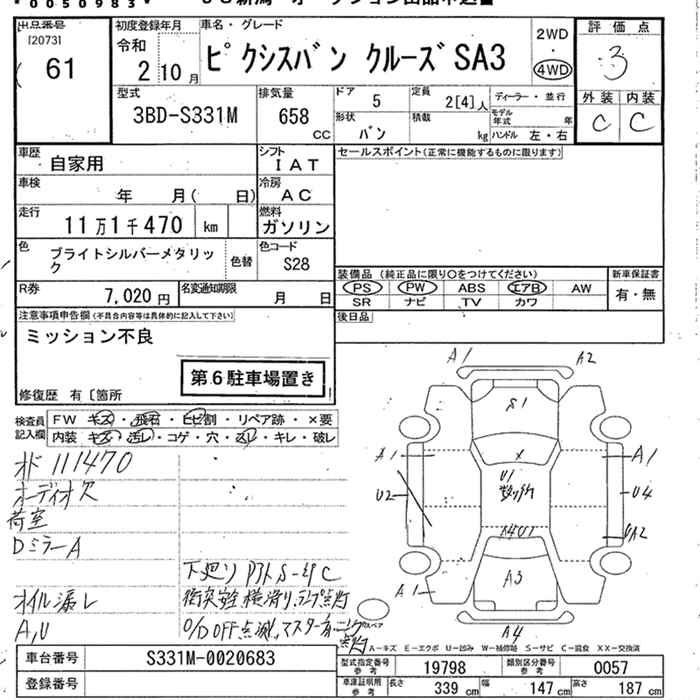 *0050983*
出品番号 初度登録年月 車名・グレード 2WD 評価点
[2073] 61 令和 2 10月 ピクシスバン クルーズSA3 4WD 3
型式 排気量 ドア 5 定員 2[4]人 ディーラー・並行 外装 内装
3BD-S331M 658 CC 形状 バン 積載 kg モデル年式 年 ハンドル 左・右 C C
車歴 自家用 シフト IAT セールスポイント(正常に機能するものに限ります)
車検 年 月( 日) 冷房 AC
走行 11万1千470 km 燃料 ガソリン
色 ブライトシルバーメタリック 色替 色コード S28
装備品(純正品に限り○をつけてください) 新車保証書
R券 7,020円 名変通知期限 月 日 PS PW ABS エアB AW 有・無
SR ナビ TV カワ
注意事項申告欄(不具合内容等は具体的に記入して下さい) 後日品
ミッション不良
第6駐車場置き
修復歴 有〔箇所
検査員記入欄 FW キズ・飛石・ヒビ割・リペア跡・×要
内装 キズ・汚レ・コゲ・穴・返り・キレ・破レ
オド111470
オーディオ欠
荷室
DミラーA
下廻り
オイル漏レ 衝突安全 横滑り、ランプ点灯
A,U O/D OFF点滅、マスターウォーニング点灯
A1 A2
S1
A1 X A1
U2 U1 U4
A4U1 A2
A1 A3
A4
スペア
A-キズ E-エクボ U-凹み W-補修跡 S-サビ C-腐食 XX-交換済
車台番号 S331M-0020683 型式指定番号 参考 19798 類別区分番号 参考 0057
登録番号 車庫証明用 参考 長さ 339 cm 幅 147 cm 高さ 187 cm